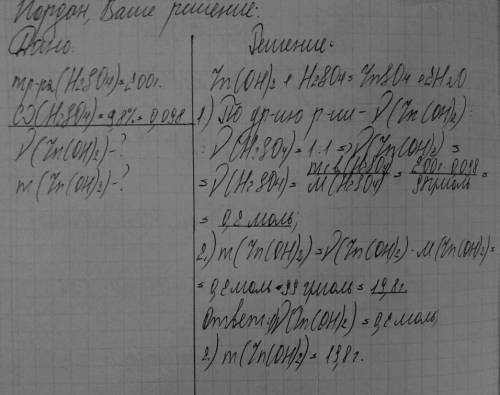 Иордан, Ваше решение:
Дано:
mр-ра(H2SO4)=200г.
ω(H2SO4)=9,8%=0,098
ν(Zn(OH)2)-?
m(Zn(OH)2)-?
Решение:
Zn(OH)2+H2SO4=ZnSO4+2H2O
1.) По ур-ию р-ии- ν(Zn(OH)2):
:ν(H2SO4)=1:1=>ν(Zn(OH)2)=
=ν(H2SO4)= mв-ва(H2SO4)/M(H2SO4) = 200г·0,098/98г/моль =
=0,2моль;
2.) m(Zn(OH)2)=ν(Zn(OH)2)·M(Zn(OH)2)=
=0,2моль·99г/моль=19,8г.
Ответ: 1.)ν(Zn(OH)2)=0,2моль;
2.) m(Zn(OH)2)=19,8г.